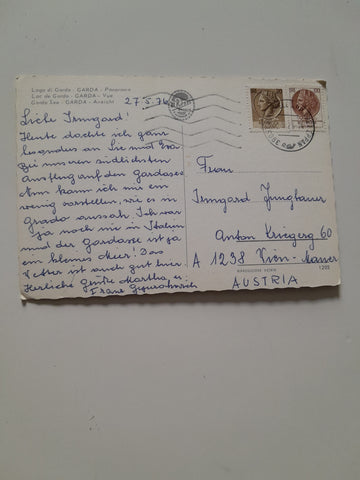 Lago di Garda - GARDA - Panorama
Lac de Garda - GARDA - Vue
Garda See - GARDA - Ansicht
27.5.76
Liebe Irmgard!
Heute dachte ich ganz
besonders an Sie und
Bei unserem südlichsten
Ausflug auf den Gardasee
kann ich mir ein
wenig vorstellen, wie es in
Grado aussah. Ich war
ja noch nie in Italien
und der Gardasee ist ja
ein kleines Meer! Das
Wetter ist auch gut hier.
Herzliche Grüße Martha, u.
Franz
Frau
Irmgard Jungbauer
Anton Kriegerg 60
A 1238 Wien-Mauer
AUSTRIA
1205